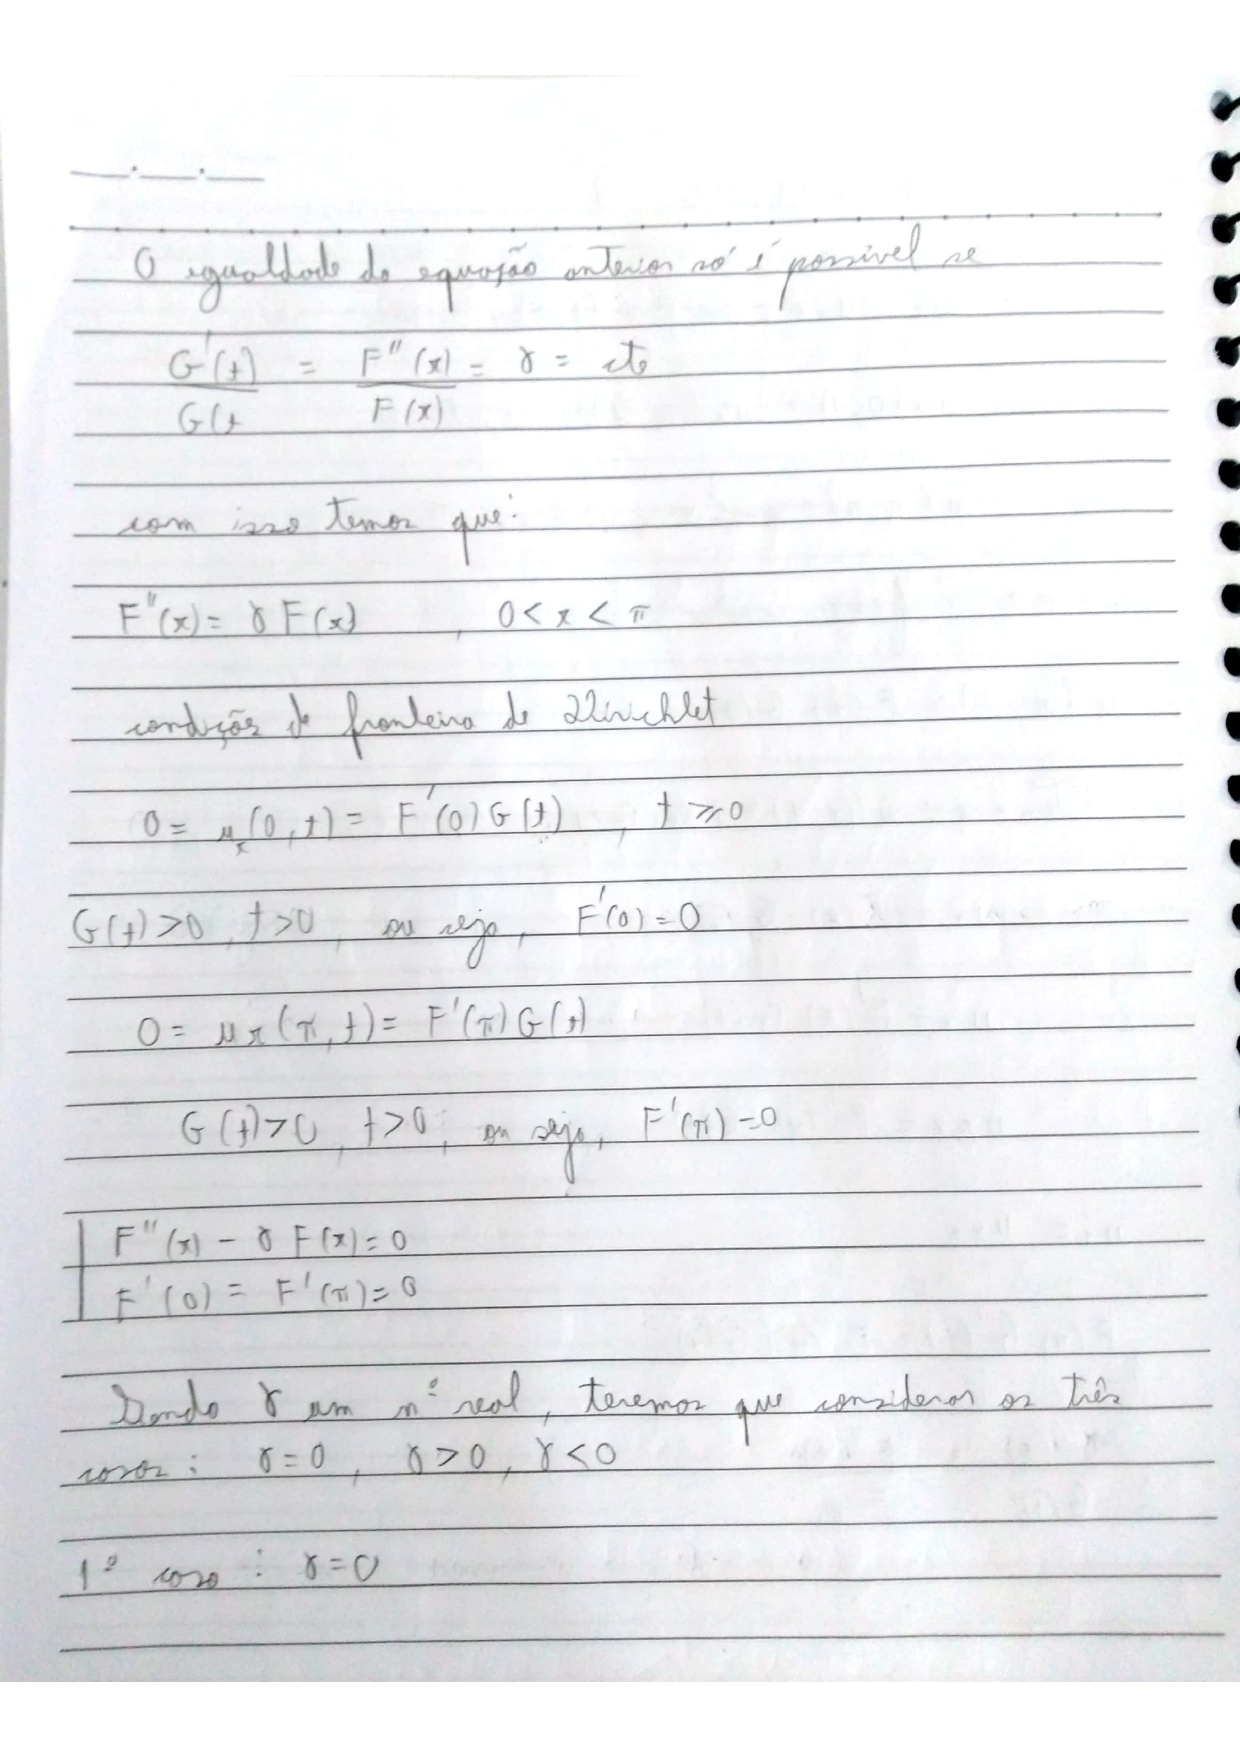 A igualdade da equação anterior só é possível se
G'(t) = F''(x) = γ = cte
G(t F(x)
com isso temos que:
F''(x) = γ F(x) , 0 < x < π
condições de fronteira de Dirichlet
0 = u_x(0, t) = F'(0) G(t) , t ≥ 0
G(t) > 0 , t > 0 , ou seja, F'(0) = 0
0 = u_x(π, t) = F'(π) G(t)
G(t) > 0 , t > 0 , ou seja, F'(π) = 0
F''(x) - γ F(x) = 0
F'(0) = F'(π) = 0
Sendo γ um nº real, teremos que considerar os três
casos: γ = 0 , γ > 0 , γ < 0
1º caso : γ = 0